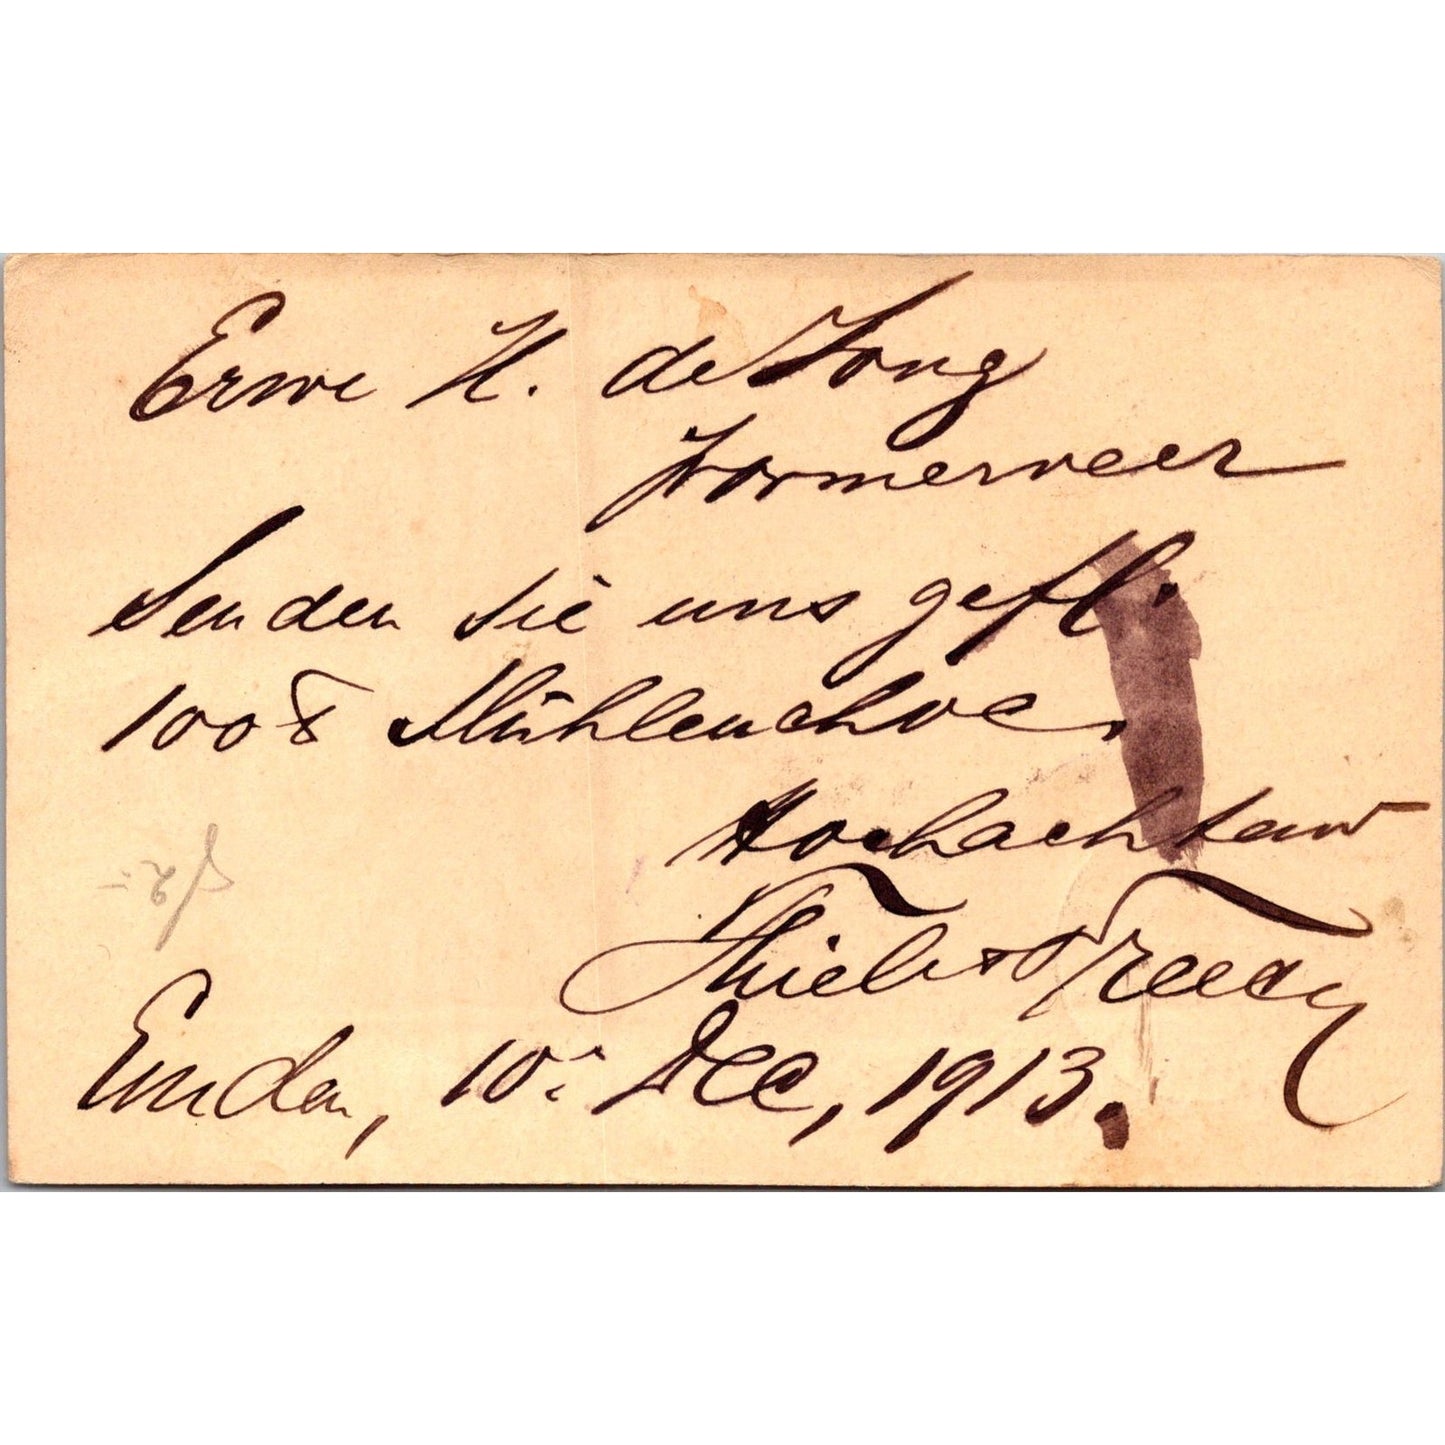 Erwe H. de Jong
Wormerveer
Senden Sie uns gefl.
100 ℔ Mühlenchoc.
Hochachtend
Thiele &
Emden, 10. Dec, 1913.